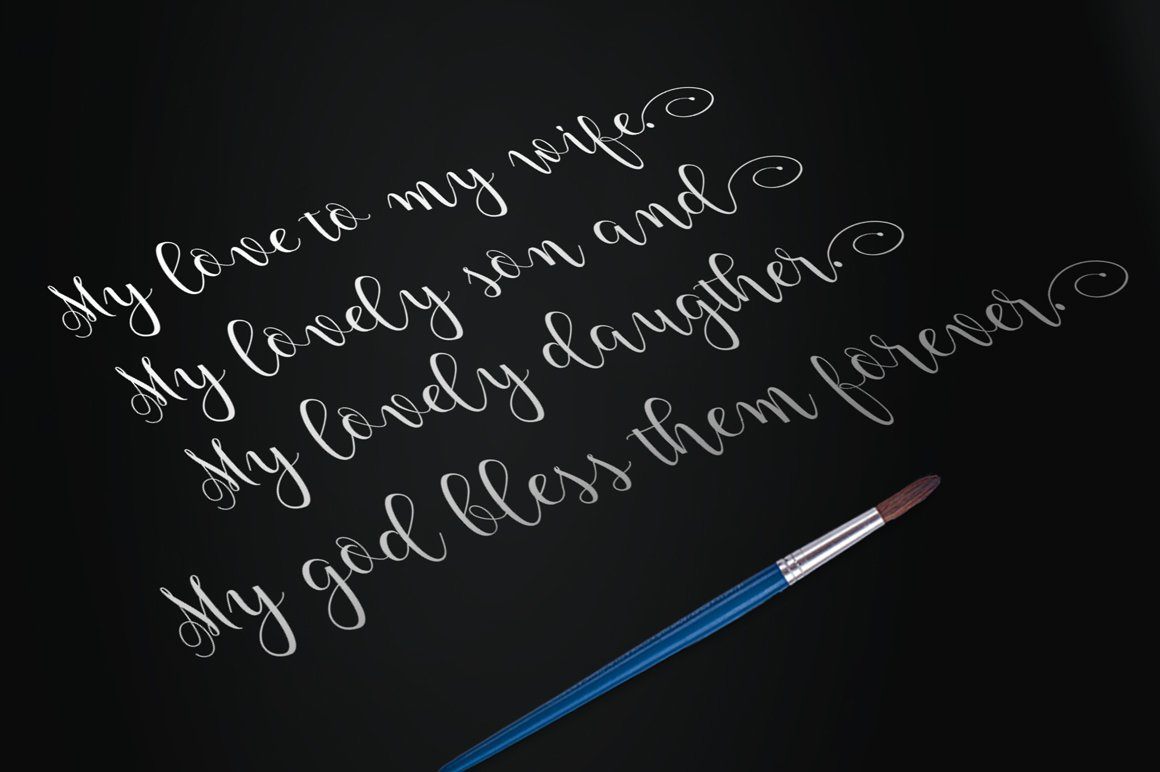 My love to my wife.
My lovely son and
My lovely daugther.
My god bless them forever.